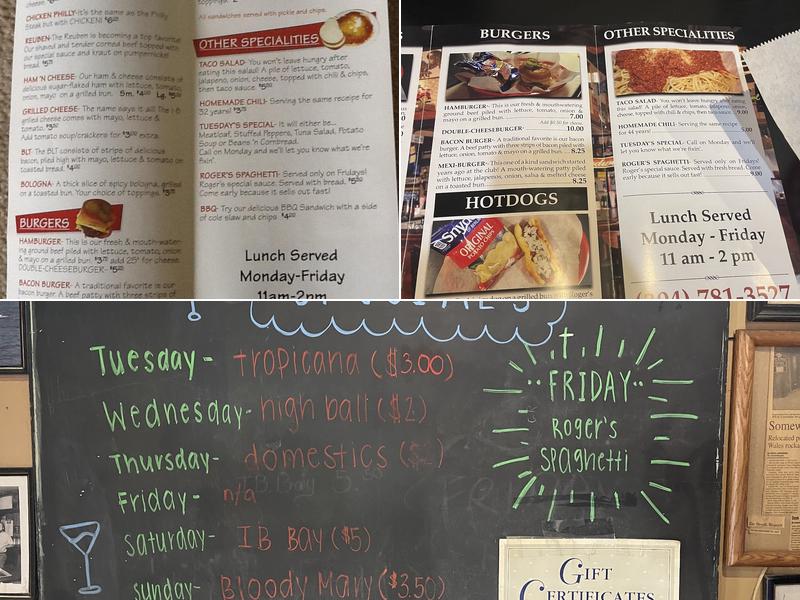 CHICKEN PHILLY-It's the same as the Philly
Steak but with CHICKEN!
REUBEN-The Reuben is becoming a top favorite
Our shaved and tender corned beef topped with
our special sauce and kraut on pumpernickel
bread.
HAM 'N CHEESE- Our ham & cheese consists of
delicious sugar-flaked ham with lettuce, tomato,
onion, mayo on a grilled bun.
GRILLED CHEESE- The name says it all! The I-B
grilled cheese comes with mayo, lettuce &
tomato.
Add tomato soup/crackers for extra.
BLT- The BLT consists of strips of delicious
bacon, piled high with mayo, lettuce & tomato on
toasted bread.
BOLOGNA- A thick slice of spicy bologna, grilled
on a toasted bun. Your choice of toppings.
BURGERS
HAMBURGER- This is our fresh & mouth-water-
ing ground beef piled with lettuce, tomato, onion
& mayo on a grilled bun. add 25¢ for cheese
DOUBLE-CHEESEBURGER-
BACON BURGER- A traditional favorite is our
bacon burger. A beef patty with three strips of
All sandwiches served with pickle and chips.
OTHER SPECIALITIES
TACO SALAD- You won't leave hungry after
eating this salad! A pile of lettuce, tomato,
jalapeno, onion, cheese, topped with chili & chips,
then taco sauce
HOMEMADE CHILI- Serving the same receipe for
32 years!
TUESDAY'S SPECIAL- It will either be...
Meatloaf, Stuffed Peppers, Tuna Salad, Potato
Soup or Beans 'n Cornbread.
Call on Monday and we'll let you know what we're
fixin'.
ROGER'S SPAGHETTI- Served only on Fridays!
Roger's special sauce. Served with bread.
Come early because it sells out fast!
BBQ- Try our delicious BBQ Sandwich with a side
of cole slaw and chips
Lunch Served
Monday-Friday
11am-2pm
BURGERS
HAMBURGER- This is our fresh & mouthwatering
ground beef piled with lettuce, tomato, onion &
mayo on a grilled bun. 7.00
Add $0.50 for cheese
DOUBLE-CHEESEBURGER- 10.00
BACON BURGER- A traditional favorite is our bacon
burger. A beef patty with three strips of bacon piled with
lettuce, onion, tomato & mayo on a grilled bun. 8.25
MEXI-BURGER- This one of a kind sandwich started
years ago at the club! A mouth-watering patty piled
with lettuce, jalapenos, onion, salsa & melted cheese
on a toasted bun. 8.25
HOTDOGS
Snyder
ORIGINAL
POTATO CHIPS
OTHER SPECIALITIES
TACO SALAD- You won't leave hungry after eating
this salad! A pile of lettuce, tomato, jalapeno, onion,
cheese, topped with chili & chips, then taco sauce. 9.00
HOMEMADE CHILI- Serving the same recipe
for 44 years! 5.00
TUESDAY'S SPECIAL- Call on Monday and we'll
let you know what we're fixin'.
ROGER'S SPAGHETTI- Served only on Fridays!
Roger's special sauce. Served with fresh bread. Come
early because it sells out fast! 9.00
Lunch Served
Monday - Friday
11 am - 2 pm
(304) 781-3527
Tuesday- tropicana ($3.00)
Wednesday- high ball ($2)
Thursday- domestics
Friday- n/a
saturday- IB BAY ($5)
sunday- Bloody Mary ($3.50)
FRIDAY
Roger's
spaghetti
GIFT
CERTIFICATES